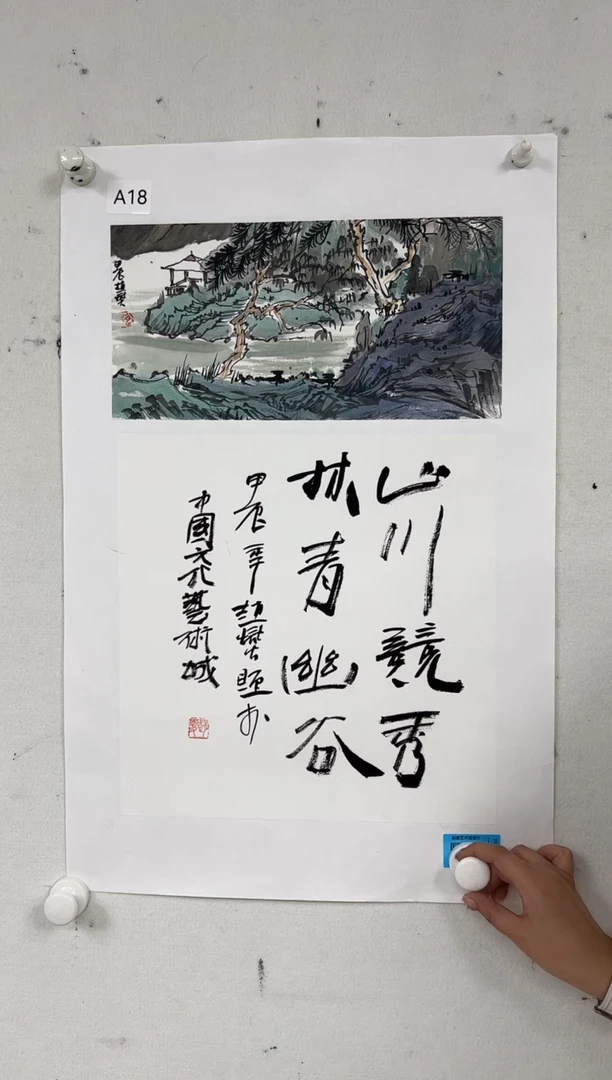 A18
甲辰
山川競秀
林青幽谷
甲辰年趙題於
中國文化藝術城